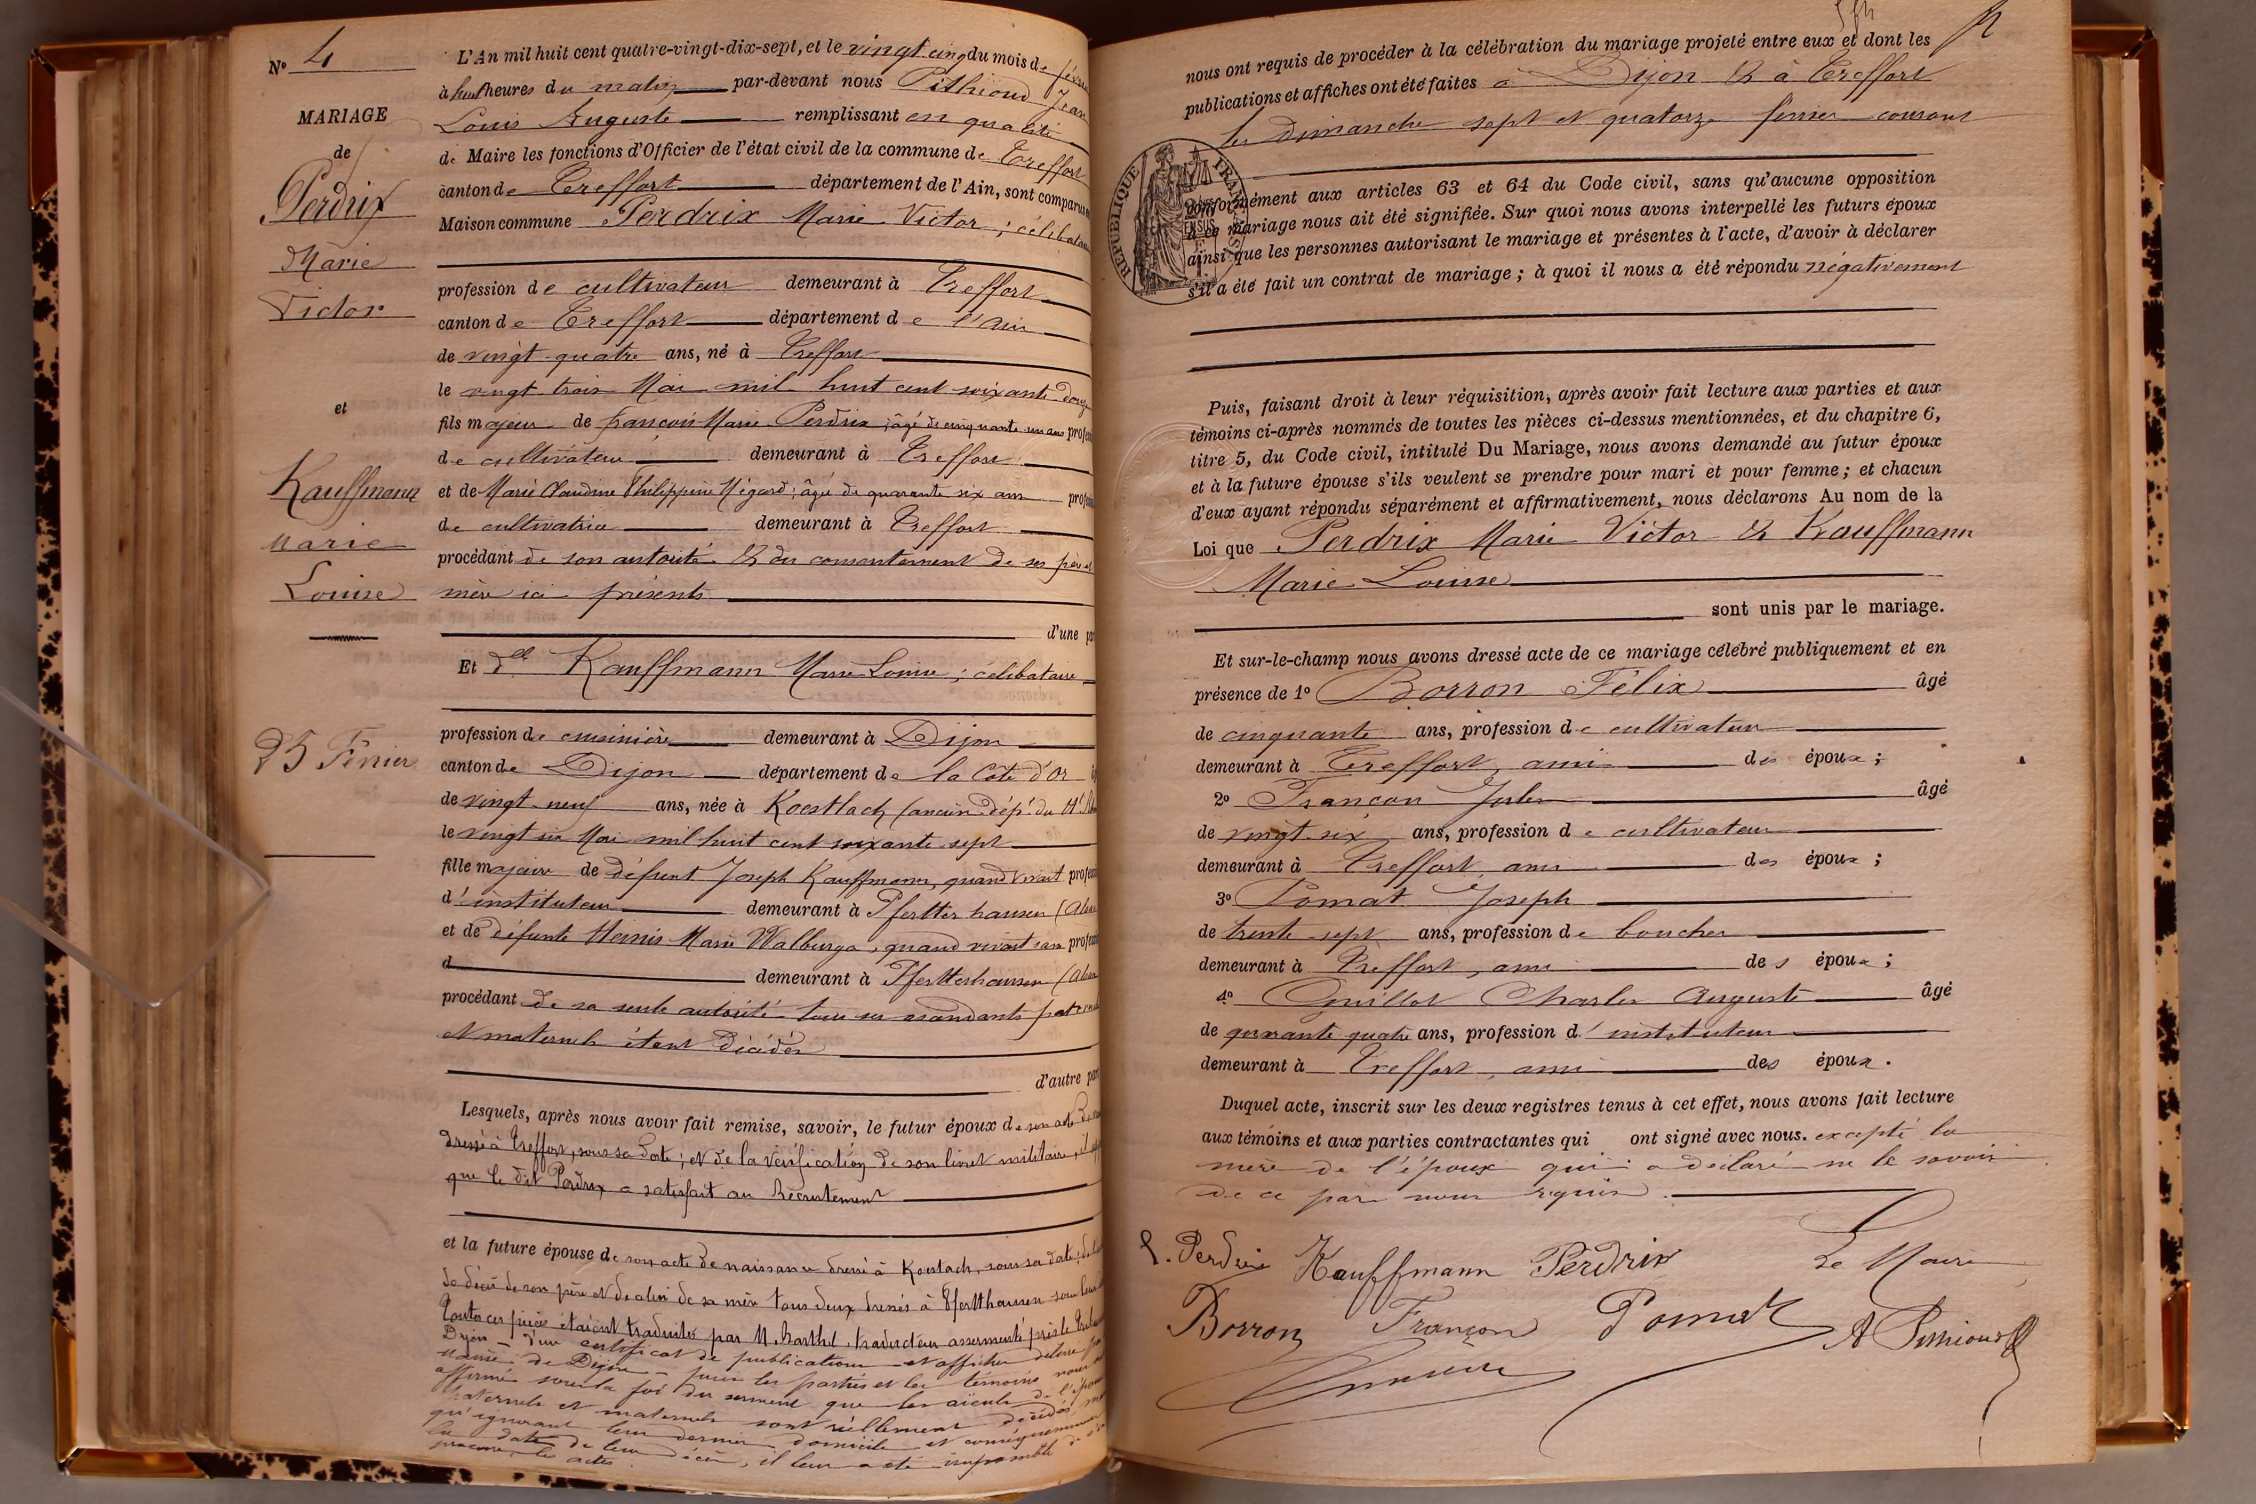 N° 4
MARIAGE
de
Perdrix
Marie
Victor
et
Kauffmann
Marie
Louise
25 Février
L'An mil huit cent quatre-vingt-dix-sept, et le vingt cinq du mois de février
à huit heures du matin par-devant nous Pithioud Jean
Louis Auguste remplissant en qualité
de Maire les fonctions d'Officier de l'état civil de la commune de Treffort
canton de Treffort département de l'Ain, sont comparus en
Maison commune Perdrix Marie Victor ; célibataire
profession de cultivateur demeurant à Treffort
canton de Treffort département de l'Ain
de vingt-quatre ans, né à Treffort
le vingt trois Mai mil huit cent soixante douze
fils majeur de françois Marie Perdrix ; âgé de cinquante un ans profess
de cultivateur demeurant à Treffort
et de Marie Claudine Philippine Mégard ; âgée de quarante six ans profess
de cultivatrice demeurant à Treffort
procédant de son autorité & du consentement de ses père et
mère ici présents
d'une part
Et dlle Kauffmann Marie Louise ; célibataire
profession de cuisinière demeurant à Dijon
canton de Dijon département de la Côte d'Or
de vingt-neuf ans, née à Koestlach (ancien dépt du Ht Rhin
le vingt six Mai mil huit cent soixante-sept
fille majeure de défunt Joseph Kauffmann, quand vivait profess
d'instituteur demeurant à Pfertterhausen (Alsace
et de défunte Hemis Marie Walburga, quand vivait sans profess
d demeurant à Pfertterhausen (Alsace
procédant de sa seule autorité tous ses ascendants paternels
et maternels étant décédés
d'autre part
Lesquels, après nous avoir fait remise, savoir, le futur époux de son acte de
dressé à Treffort, sous sa date ; et de la vérification de son livret militaire, il
que le dit Perdrix a satisfait au Recrutement
et la future épouse de son acte de naissance dressé à Koestlach, sous sa date ;
de décès de son père et de celui de sa mère tous deux dressés à Pfertthausen sous leur
Toutes ces pièces étaient traduites par M. Barthel, traducteur assermenté près le
Dijon - d'un certificat de publication et affiches délivré
mairie de Dijon - puis les parties et les témoins nous
affirmé sous la foi du serment que les aïeuls de l'épouse
paternels et maternels sont réellement décédés
qu'ignorant leur dernier domicile et conséquemment
la date de leur décès, il leur a été impossible de s'en
procurer les actes.
nous ont requis de procéder à la célébration du mariage projeté entre eux et dont les
publications et affiches ont été faites à Dijon & à Treffort
les dimanches sept et quatorze février courant
RÉPUBLIQUE FRANÇAISE
conformément aux articles 63 et 64 du Code civil, sans qu'aucune opposition
à ce mariage nous ait été signifiée. Sur quoi nous avons interpellé les futurs époux
ainsi que les personnes autorisant le mariage et présentes à l'acte, d'avoir à déclarer
s'il a été fait un contrat de mariage ; à quoi il nous a été répondu négativement
Puis, faisant droit à leur réquisition, après avoir fait lecture aux parties et aux
témoins ci-après nommés de toutes les pièces ci-dessus mentionnées, et du chapitre 6,
titre 5, du Code civil, intitulé Du Mariage, nous avons demandé au futur époux
et à la future épouse s'ils veulent se prendre pour mari et pour femme ; et chacun
d'eux ayant répondu séparément et affirmativement, nous déclarons Au nom de la
Loi que Perdrix Marie Victor & Kauffmann
Marie Louise
sont unis par le mariage.
Et sur-le-champ nous avons dressé acte de ce mariage célébré publiquement et en
présence de 1° Borron Félix âgé
de cinquante ans, profession de cultivateur
demeurant à Treffort, ami des époux ;
2° Françon Jules âgé
de vingt-six ans, profession de cultivateur
demeurant à Treffort, ami des époux ;
3° Pomat Joseph
de trente-sept ans, profession de boucher
demeurant à Treffort, ami des époux ;
4° Guillot Charles Auguste âgé
de quarante quatre ans, profession d'instituteur
demeurant à Treffort, ami des époux.
Duquel acte, inscrit sur les deux registres tenus à cet effet, nous avons fait lecture
aux témoins et aux parties contractantes qui ont signé avec nous. excepté la
mère de l'époux qui a déclaré ne le savoir
de ce par nous requise.
Perdrix Kauffmann Perdrix Le Maire
Borron Françon Pomat A Pithioud